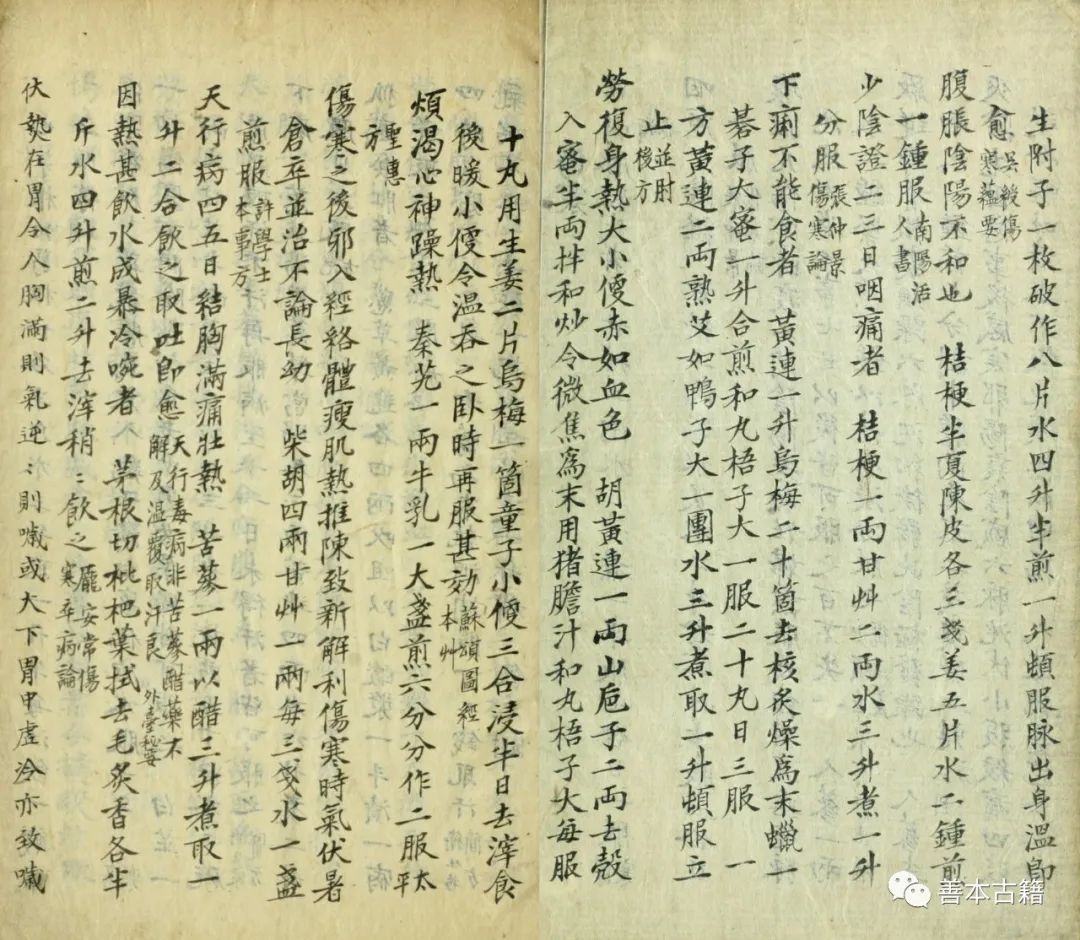 生附子一枚破作八片水四升半煎一升頓服脉出身溫即
愈吳綬傷寒蘊要
腹脹陰陽不和也　桔梗半夏陳皮各三戔姜五片水二鍾煎
一鍾服南陽活人書
少陰證二三日咽痛者　桔梗一両甘艸二両水三升煮一升
分服張仲景傷寒論
下痢不能食者　黃連一升烏梅二十箇去核炙燥爲末蠟一
碁子大蜜一升合煎和丸梧子大一服二十丸日三服　一
方黃連二両熟艾如鴨子大一團水三升煮取一升頓服立
止並肘後方
勞復身熱大小便赤如血色　胡黃連一両山巵子二両去殼
入蜜半両拌和炒令微焦爲末用猪膽汁和丸梧子大每服
十丸用生姜二片烏梅一箇童子小便三合浸半日去滓食
後暖小便令温吞之卧時再服甚効蘇頌圖經本艸
煩渴心神躁熱　秦艽一兩牛乳一大盞煎六分分作二服太平
聖惠方
傷寒之後邪入經絡體瘦肌熱推陳致新解利傷寒時氣伏暑
倉卒並治不論長幼　柴胡四兩甘艸一兩每三戔水一盞
煎服許學士本事方
天行病四五日結胸滿痛壯熱　苦蔘一兩以醋三升煮取一
升二合飲之取吐即愈天行毒病非苦蔘醋藥不解及温覆取汗良外臺秘要
因熱甚飲水成暴冷啘者　茅根切枇杷葉拭去毛炙香各半
斤水四升煎二升去滓稍:飲之龐安常傷寒卒病論
伏熱在胃令人胸滿則氣逆:則噦或大下胃中虛冷亦致噦
善本古籍